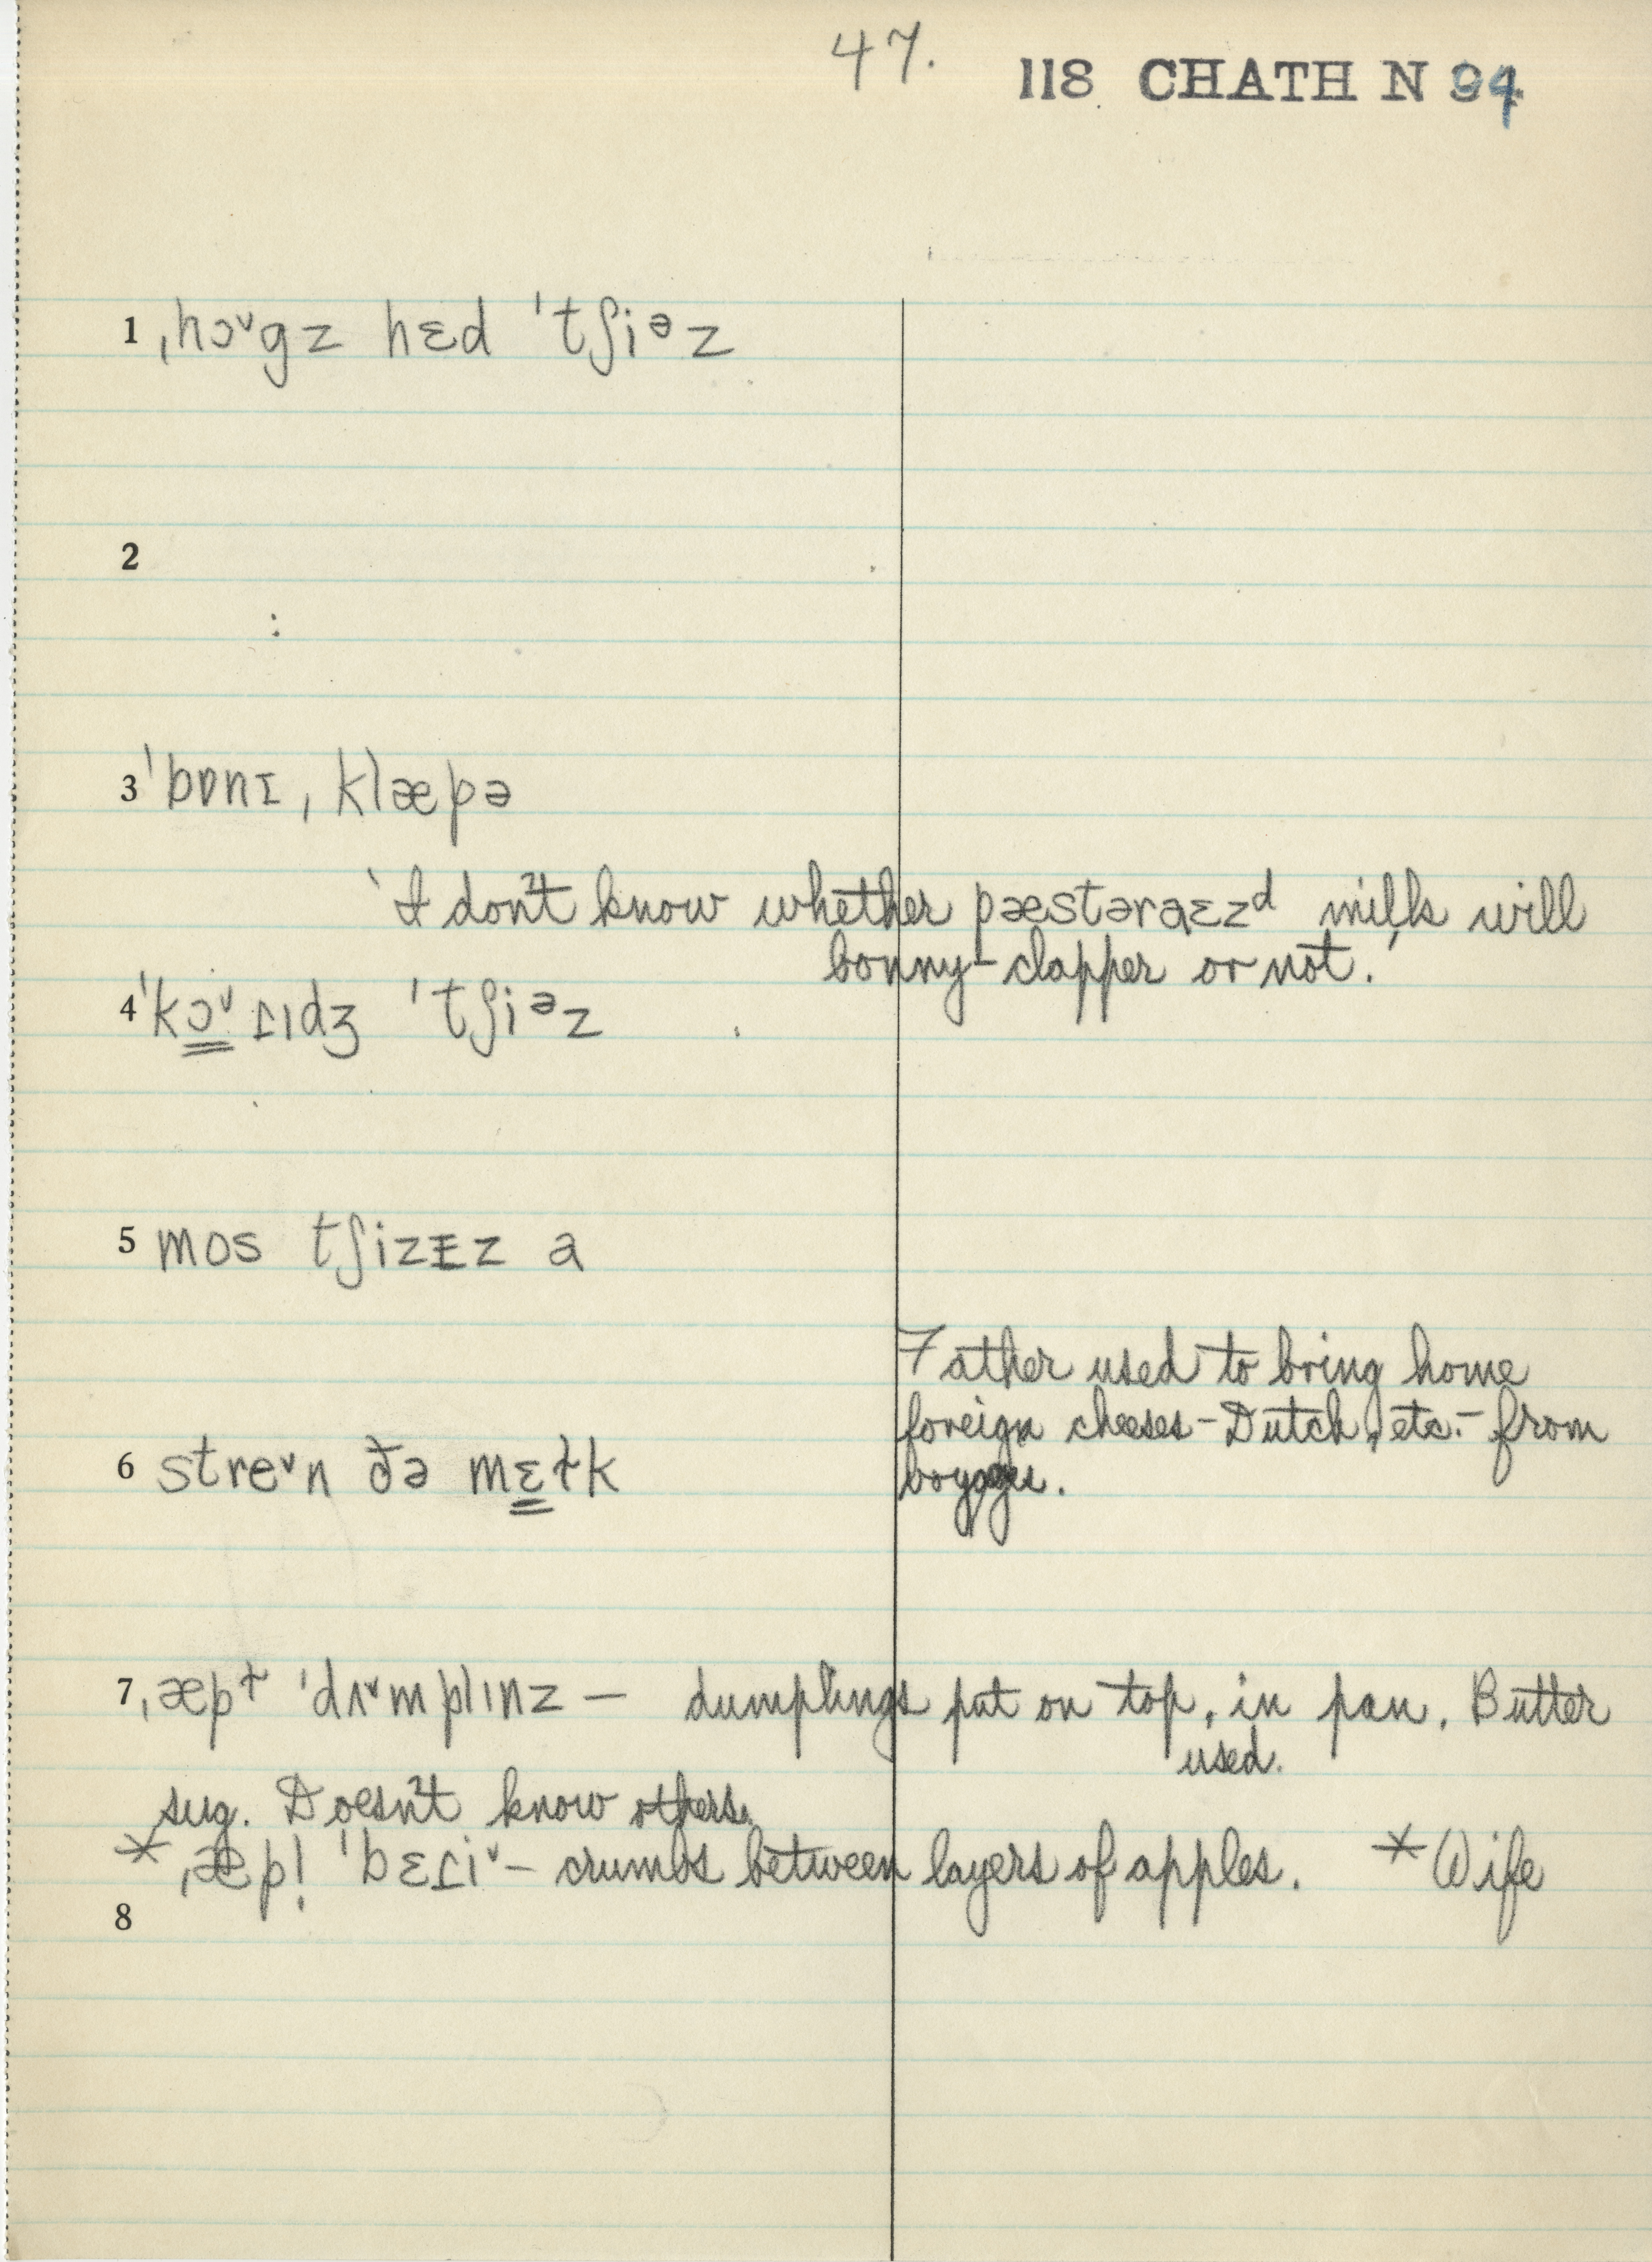 47.
118 CHATH N 94
1 ˌhɔ˅gz hɛd ˈtʃiᵊz
2
3 ˈbɒnɪ ˌklæpə
'I don't know whether pæstəraɛzᵈ milk will
bonny-clapper or not.'
4 ˈkɔ˅ɾɪdʒ ˈtʃiᵊz
5 mos tʃizɪz a
Father used to bring home
foreign cheeses – Dutch, etc. – from
6 stre˅n ðə mɛɫk
7 ˌæpɫ ˈdʌ˅mplɪnz – dumplings put on top, in pan. Butter
used.
sug. Doesn't know others.
* ˌæpl̩ ˈbɛɾi˅ – crumbs between layers of apples. * Wife
8